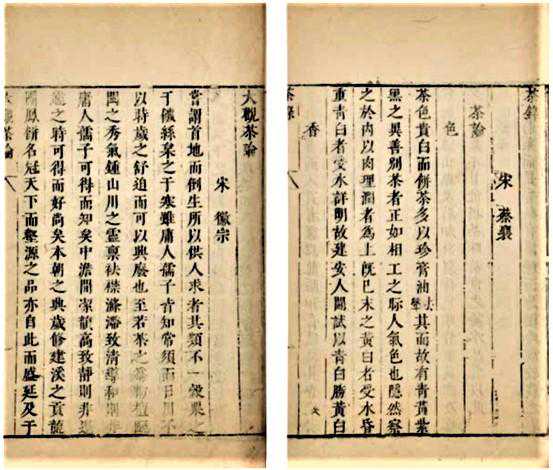 茶錄
宋 蔡襄
茶論
色
茶色貴白而餅茶多以珍膏油去聲其面故有青黃紫
黑之異善別茶者正如相工之眎人氣色也隱然察
之於內以肉理潤者為上既已末之黃白者受水昏
重青白者受水詳明故建安人鬬試以青白勝黃白
香
茶錄
大觀茶論
宋 徽宗
嘗謂首地而倒生所以供人求者其類不一穀粟之
于饑絲枲之于寒雖庸人孺子皆知常須而日用不
以時歲之舒迫而可以興廢也至若茶之為物擅甌
閩之秀氣鍾山川之靈稟祛襟滌滯致清導和則非
庸人孺子可得而知矣中澹閒潔韻高致靜則非遑
遽之時可得而好尚矣本朝之興歲修建溪之貢龍
團鳳餅名冠天下而壑源之品亦自此而盛延及于
大觀茶論